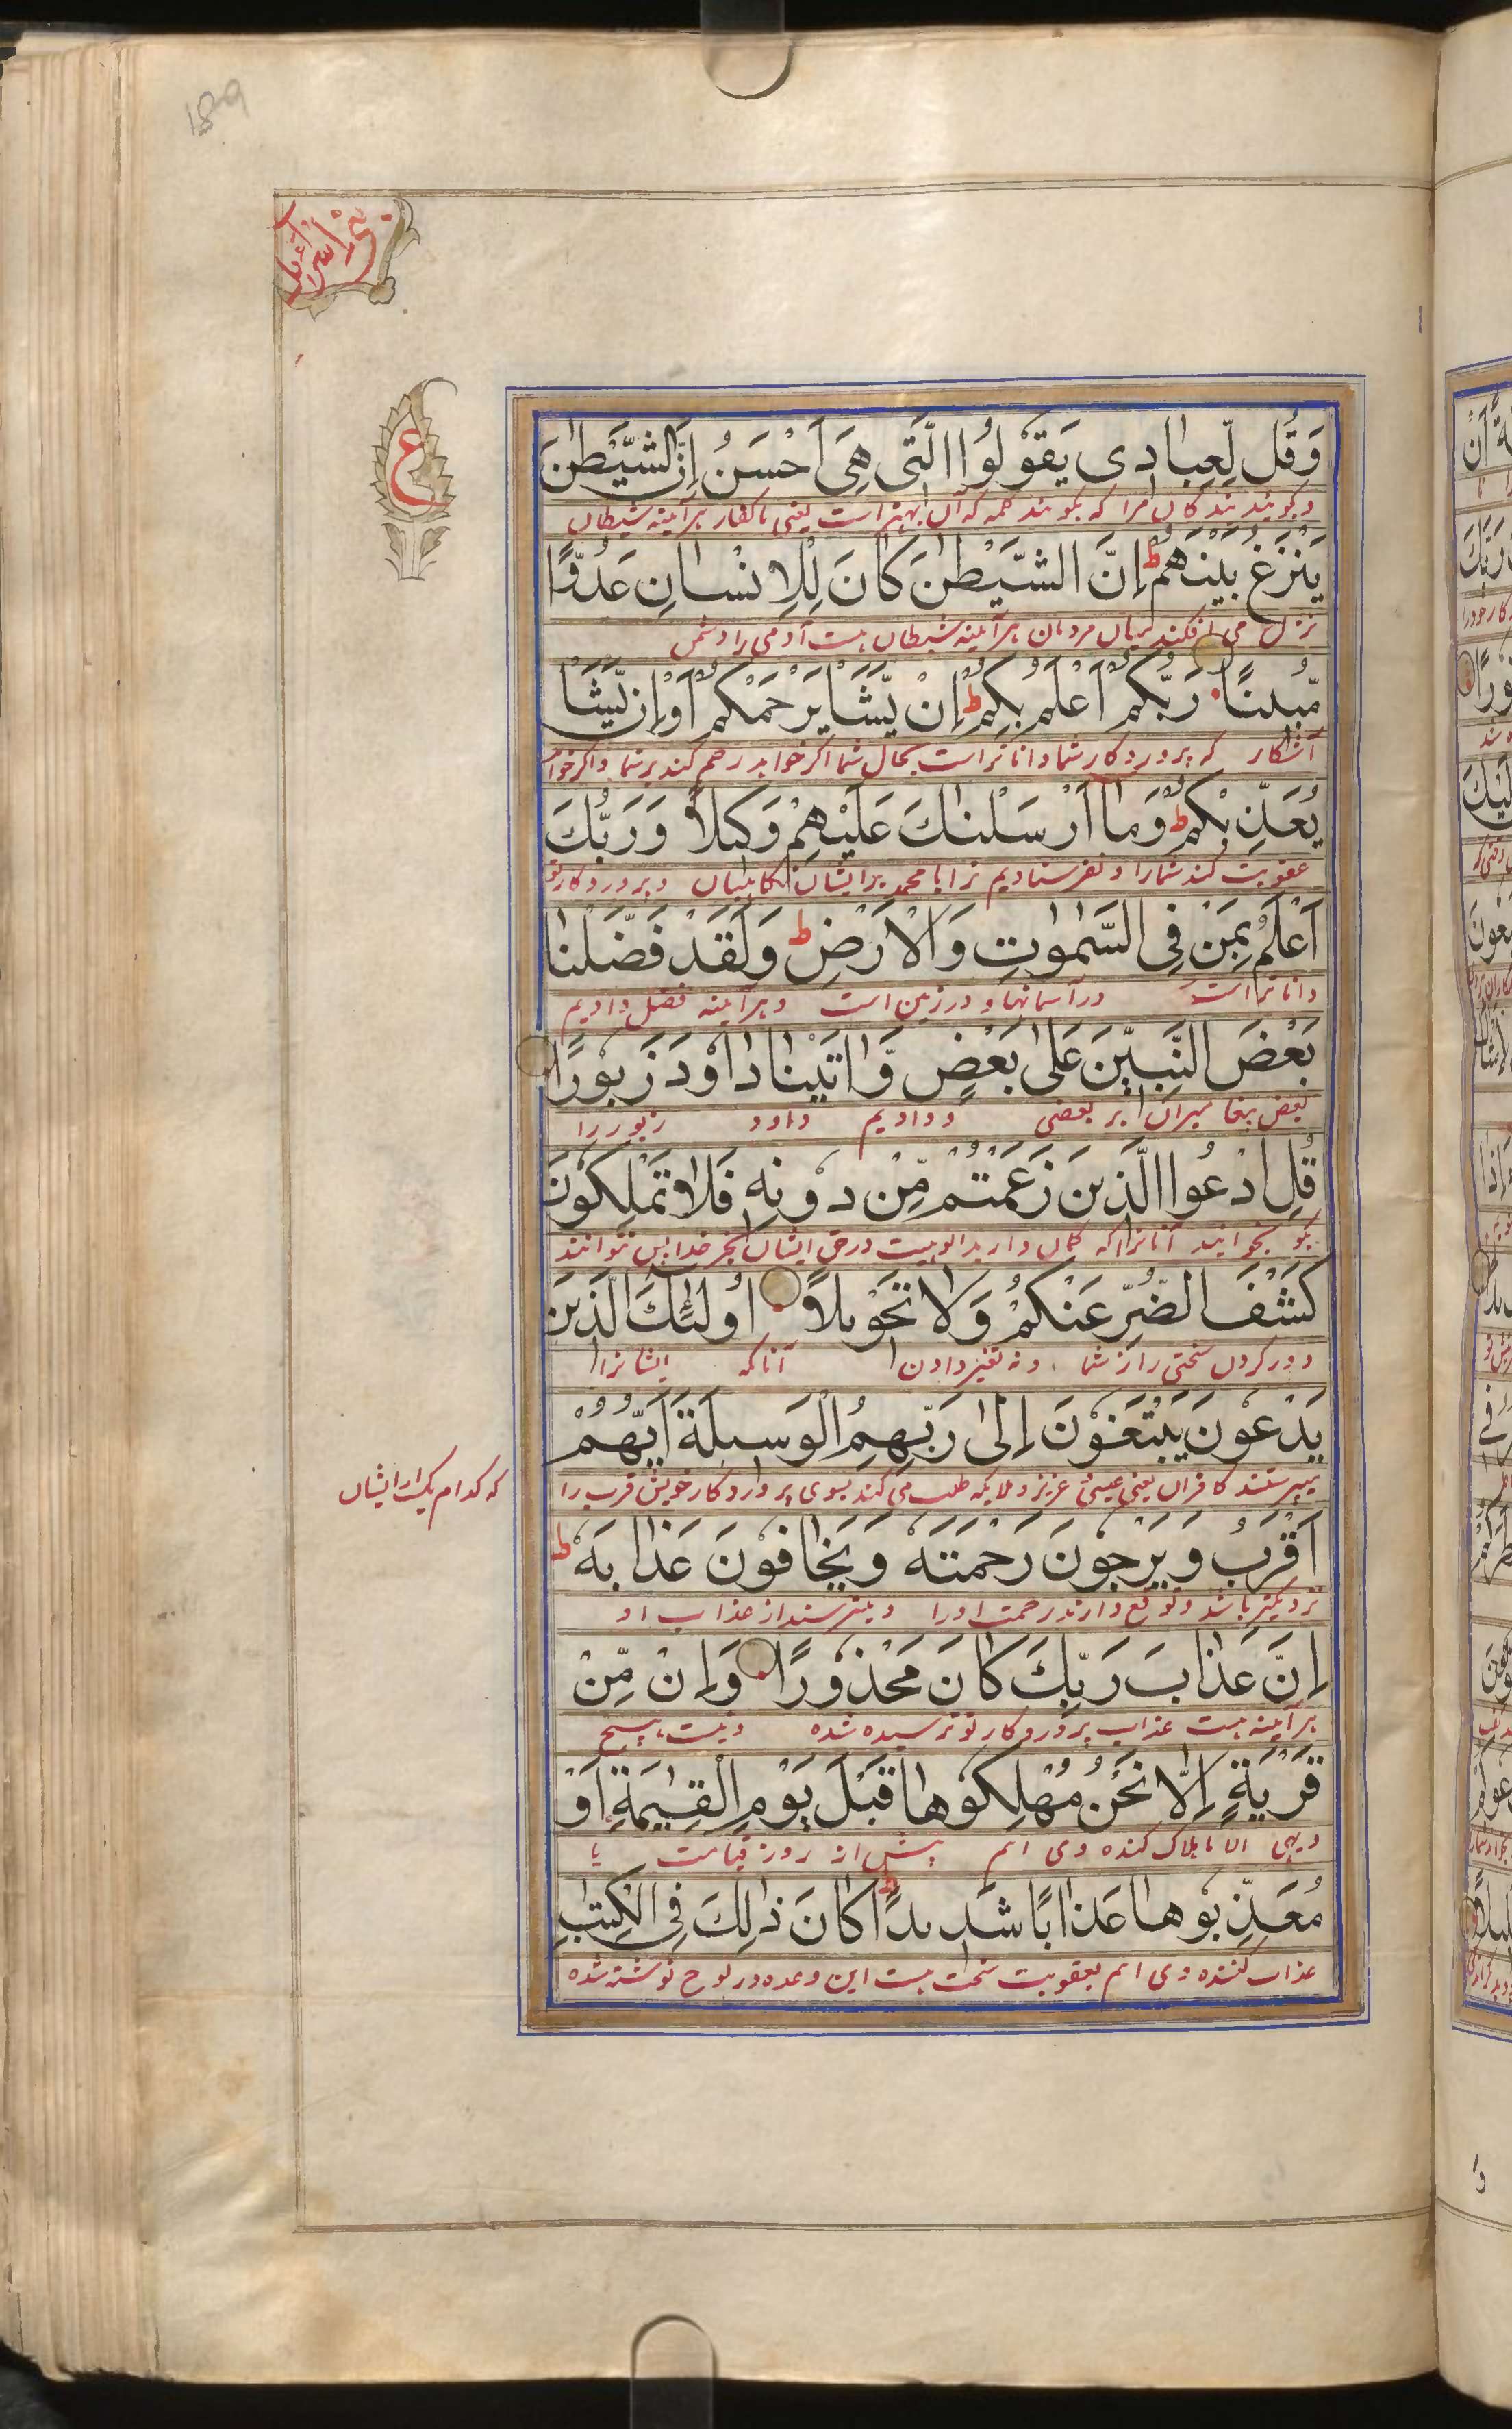 189
بنی اسرائیل
ع
وَقُل لِّعِبَادِی یَقُولُوا الَّتِی هِیَ اَحْسَنُ اِنَّ الشَّیْطٰنَ
و بگو بندبندگان مرا که بگویند کلمه که آن بهتر است یعنی با کفار هرآینه شیطان
یَنْزَغُ بَیْنَهُمْ ط اِنَّ الشَّیْطٰنَ کَانَ لِلْاِنْسَانِ عَدُوًّا
نزغ می افکند میان مردمان هرآینه شیطان هست آدمی را دشمن
مُّبِینًا رَبُّکُمْ اَعْلَمُ بِکُمْ ط اِنْ یَّشَأْ یَرْحَمْکُمْ اَوْ اِن یَّشَأْ
آشکار که پروردگار شما داناتر است بحال شما اگر خواهد رحم کند بر شما و اگر خواهد
یُعَذِّبْکُمْ ط وَمَا اَرْسَلْنٰكَ عَلَیْهِمْ وَکِیلًا وَرَبُّكَ
عقوبت کند شما را و نفرستادیم ترا یا محمد بر ایشان نگاهبان و پروردگار تو
اَعْلَمُ بِمَنْ فِی السَّمٰوٰتِ وَالْاَرْضِ ط وَلَقَدْ فَضَّلْنَا
داناتر است در آسمانها و در زمین است و هرآینه فضل دادیم
بَعْضَ النَّبِیّٖنَ عَلٰی بَعْضٍ وَّاٰتَیْنَا دَاوٗدَ زَبُورًا
بعض پیغامبران بر بعضی و دادیم داود زبور را
قُلِ ادْعُوا الَّذِینَ زَعَمْتُم مِّنْ دُونِهٖ فَلَا یَمْلِکُونَ
بگو بخوانید آنانرا که گمان دارید الوهیت در حق ایشان بجز خدا پس نتوانند
کَشْفَ الضُّرِّ عَنْکُمْ وَلَا تَحْوِیلًا اُولٰئِكَ الَّذِینَ
دور کردن سختی را از شما و نه تغیر دادن آنانکه ایشانرا
یَدْعُونَ یَبْتَغُونَ اِلٰی رَبِّهِمُ الْوَسِیلَةَ اَیُّهُمْ
میپرستند کافران یعنی عیسی و عزیز و ملایکه طلب می کنند بسوی پروردگار خویش قرب را
که کدام یک از ایشان
اَقْرَبُ وَیَرْجُونَ رَحْمَتَهٗ وَیَخَافُونَ عَذَابَهٗ ط
نزدیکتر باشد و توقع دارند رحمت او را و میترسند از عذاب او
اِنَّ عَذَابَ رَبِّكَ کَانَ مَحْذُورًا وَاِنْ مِّنْ
هرآینه هست عذاب پروردگار تو ترسیده شده و نیست هیچ
قَرْیَةٍ اِلَّا نَحْنُ مُهْلِکُوهَا قَبْلَ یَوْمِ الْقِیٰمَةِ اَوْ
دیهی الا ما هلاک کننده وی ایم پیش از روز قیامت یا
مُعَذِّبُوهَا عَذَابًا شَدِیدًا ط کَانَ ذٰلِكَ فِی الْکِتٰبِ
عذاب کننده وی ایم بعقوبت سخت هست این وعده در لوح نوشته شده